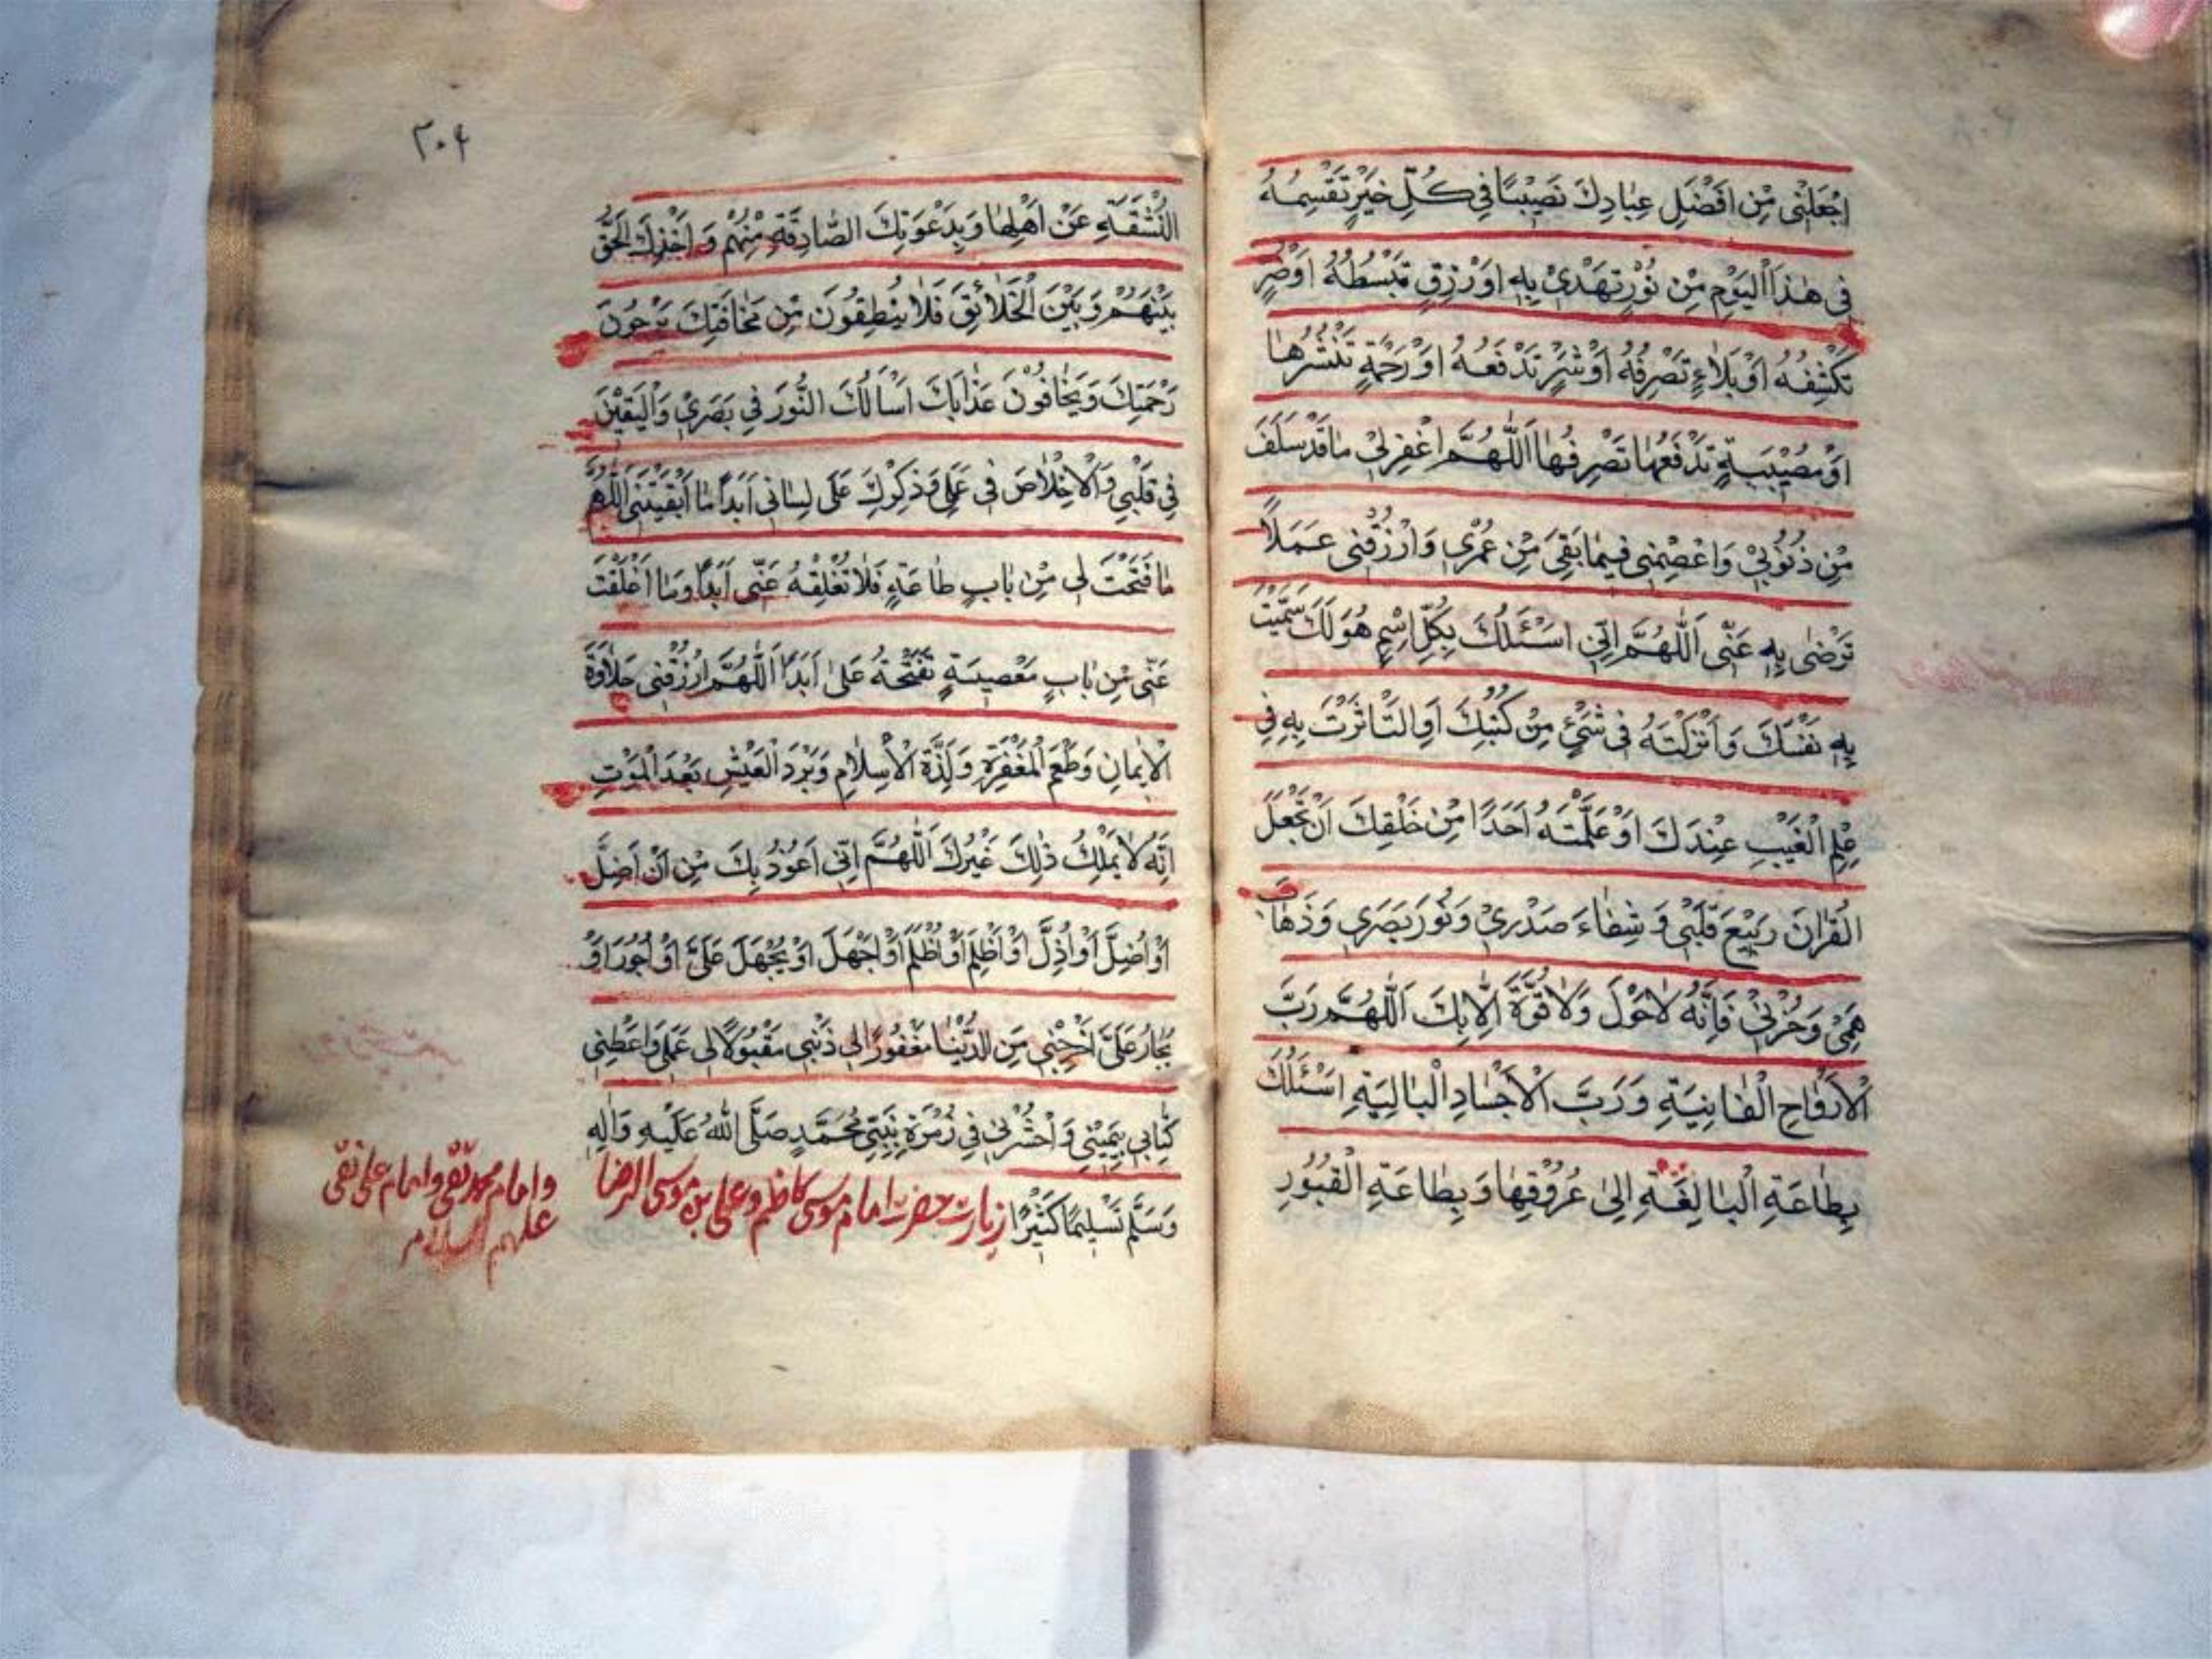 اِجْعَلْنٖى مِنْ اَفْضَلِ عِبَادِكَ نَصٖيبًا فٖى كُلِّ خَيْرٍ تَقْسِمُهُ
فٖى هٰذَا الْيَوْمِ مِنْ نُوْرٍ تَهْدٖىْ بِهٖ اَوْ رِزْقٍ تَبْسُطُهُ اَوْ ضُرٍّ
تَكْشِفُهُ اَوْ بَلَاءٍ تَصْرِفُهُ اَوْ شَرٍّ تَدْفَعُهُ اَوْ رَحْمَةٍ تَنْشُرُهَا
اَوْ مُصٖيْبَةٍ تَدْفَعُهَا تَصْرِفُهَا اَللّٰهُمَّ اغْفِرْلٖىْ مَا قَدْ سَلَفَ
مِنْ ذُنُوْبٖىْ وَاعْصِمْنٖى فٖيمَا بَقِىَ مِنْ عُمْرٖى وَارْزُقْنٖى عَمَلًا
تَرْضٰى بِهٖ عَنّٖى اَللّٰهُمَّ اِنّٖى اَسْئَلُكَ بِكُلِّ اِسْمٍ هُوَ لَكَ سَمَّيْتَ
بِهٖ نَفْسَكَ وَاَنْزَلْتَهُ فٖى شَىْءٍ مِنْ كُتُبِكَ اَوِ التَّاثَرْتَ بِهٖ فٖى
عِلْمِ الْغَيْبِ عِنْدَكَ اَوْ عَلَّمْتَهُ اَحَدًا مِنْ خَلْقِكَ اَنْ تَجْعَلَ
الْقُرْاٰنَ رَبٖيْعَ قَلْبٖى وَ شِفَاءَ صَدْرٖىْ وَ نُوْرَ بَصَرٖى وَ ذَهَابَ
هَمّٖىْ وَ حُزْنٖىْ فَاِنَّهُ لَا حَوْلَ وَ لَا قُوَّةَ اِلَّا بِكَ اَللّٰهُمَّ رَبَّ
الْاَرْوَاحِ الْفَانِيَةِ وَ رَبَّ الْاَجْسَادِ الْبَالِيَةِ اَسْئَلُكَ
بِطَاعَةِ الْبَالِغَةِ اِلىٰ عُرُوْقِهَا وَ بِطَاعَةِ الْقُبُوْرِ
٢٠٤
الْمُنْشَقَّةِ عَنْ اَهْلِهَا وَ بِدَعْوَتِكَ الصَّادِقَةِ مِنْهُمْ وَ اَخْذِكَ الْحَقَّ
بَيْنَهُمْ وَ بَيْنَ الْخَلَائِقِ فَلَا يَنْطِقُوْنَ مِنْ مَخَافَتِكَ يَرْجُوْنَ
رَحْمَتَكَ وَ يَخَافُوْنَ عَذَابَكَ اَسْاَلُكَ النُّوْرَ فٖى بَصَرٖىْ وَالْيَقٖيْنَ
فٖى قَلْبٖى وَالْاِخْلَاصَ فٖى عَمَلٖى وَ ذِكْرِكَ عَلٰى لِسَانٖى اَبَدًا مَا اَبْقَيْتَنٖى اَللّٰهُمَّ
مَا فَتَحْتَ لٖى مِنْ بَابٍ طَاعَةٍ فَلَا تُغْلِقْهُ عَنّٖى اَبَدًا وَمَا اَغْلَقْتَ
عَنّٖى مِنْ بَابٍ مَعْصِيَةٍ تَفْتَحْهُ عَلَىَّ اَبَدًا اَللّٰهُمَّ ارْزُقْنٖى حَلَاوَةَ
الْاٖيمَانِ وَ طَعْمَ الْمَغْفِرَةِ وَ لَذَّةَ الْاِسْلَامِ وَ بَرْدَ الْعَيْشِ بَعْدَ الْمَوْتِ
اِنَّهُ لَا يَمْلِكُ ذٰلِكَ غَيْرُكَ اَللّٰهُمَّ اِنّٖى اَعُوْذُ بِكَ مِنْ اَنْ اَضِلَّ
اَوْ اُضِلَّ اَوْ اُذِلَّ اَوْ اَظْلِمَ اَوْ اُظْلَمَ اَوْ اَجْهَلَ اَوْ يُجْهَلَ عَلَىَّ اَوْ اَجُوْرَ اَوْ
يُجَارَ عَلَىَّ اَخْرِجْنٖى مِنَ الدُّنْيَا مَغْفُوْرًا لٖى ذَنْبٖى مَقْبُوْلًا لٖى عَمَلٖى وَاَعْطِنٖى
كِتَابٖى بِيَمٖيْنٖى وَ احْشُرْنٖى فٖى زُمْرَةِ نَبِيّٖى مُحَمَّدٍ صَلَّى اللّٰهُ عَلَيْهِ وَاٰلِهٖ
وَسَلَّمَ تَسْلٖيمًا كَثٖيْرًا زیارت حضرت امام موسی کاظم و علی بن موسی الرضا
و امام محمد تقی و امام علی نقی
علیهم السلام